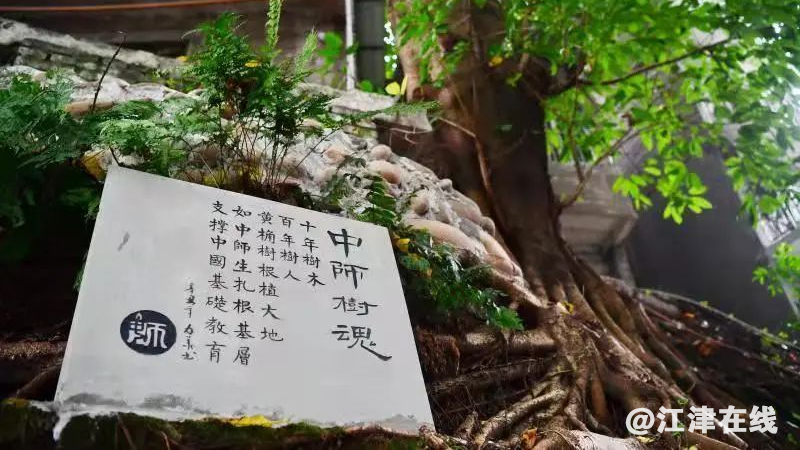 中师树魂
十年樹木
百年樹人
黄桷樹根植大地
如中師生扎根基層
支撑中國基礎教育
師
@江津在线